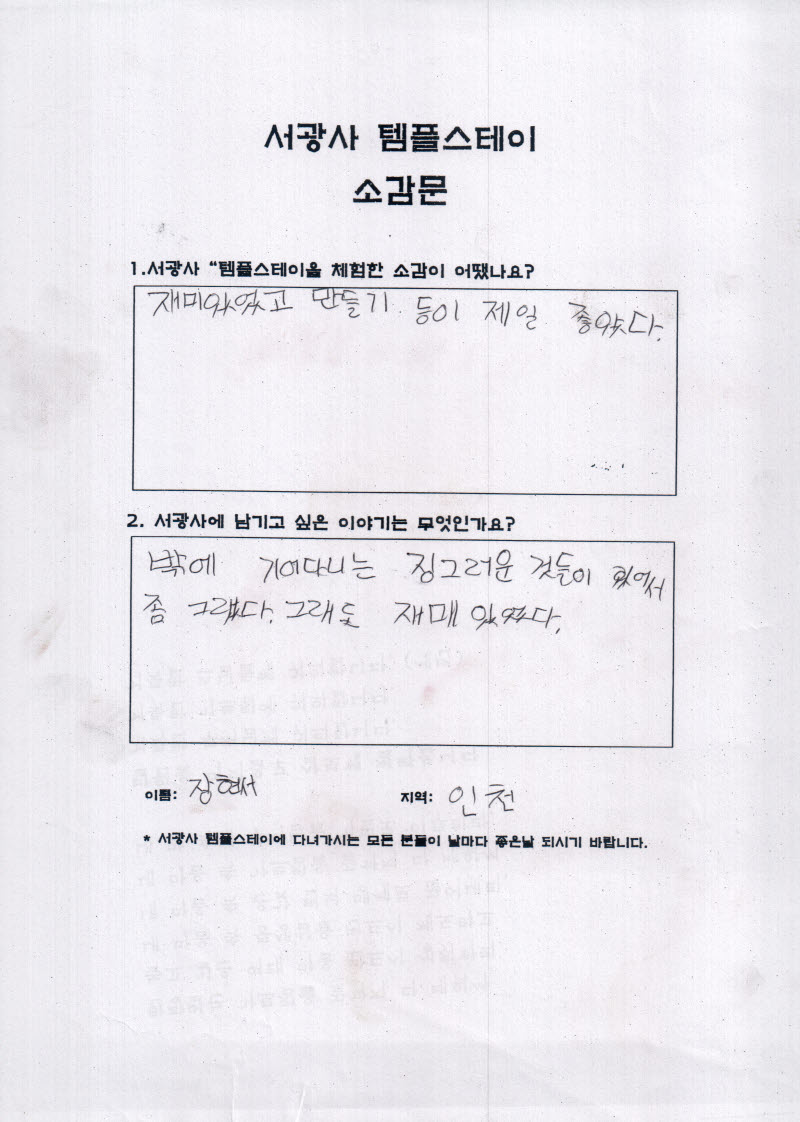 서광사 템플스테이
소감문
1.서광사 “템플스테이을 체험한 소감이 어땠나요?
재미있었고 만들기 등이 제일 좋았다.
2. 서광사에 남기고 싶은 이야기는 무엇인가요?
밖에 기어다니는 징그러운 것들이 있어서
좀 그랬다. 그래도 재매있었다.
이름: 장현서 지역: 인천
* 서광사 템플스테이에 다녀가시는 모든 분들이 날마다 좋은날 되시기 바랍니다.